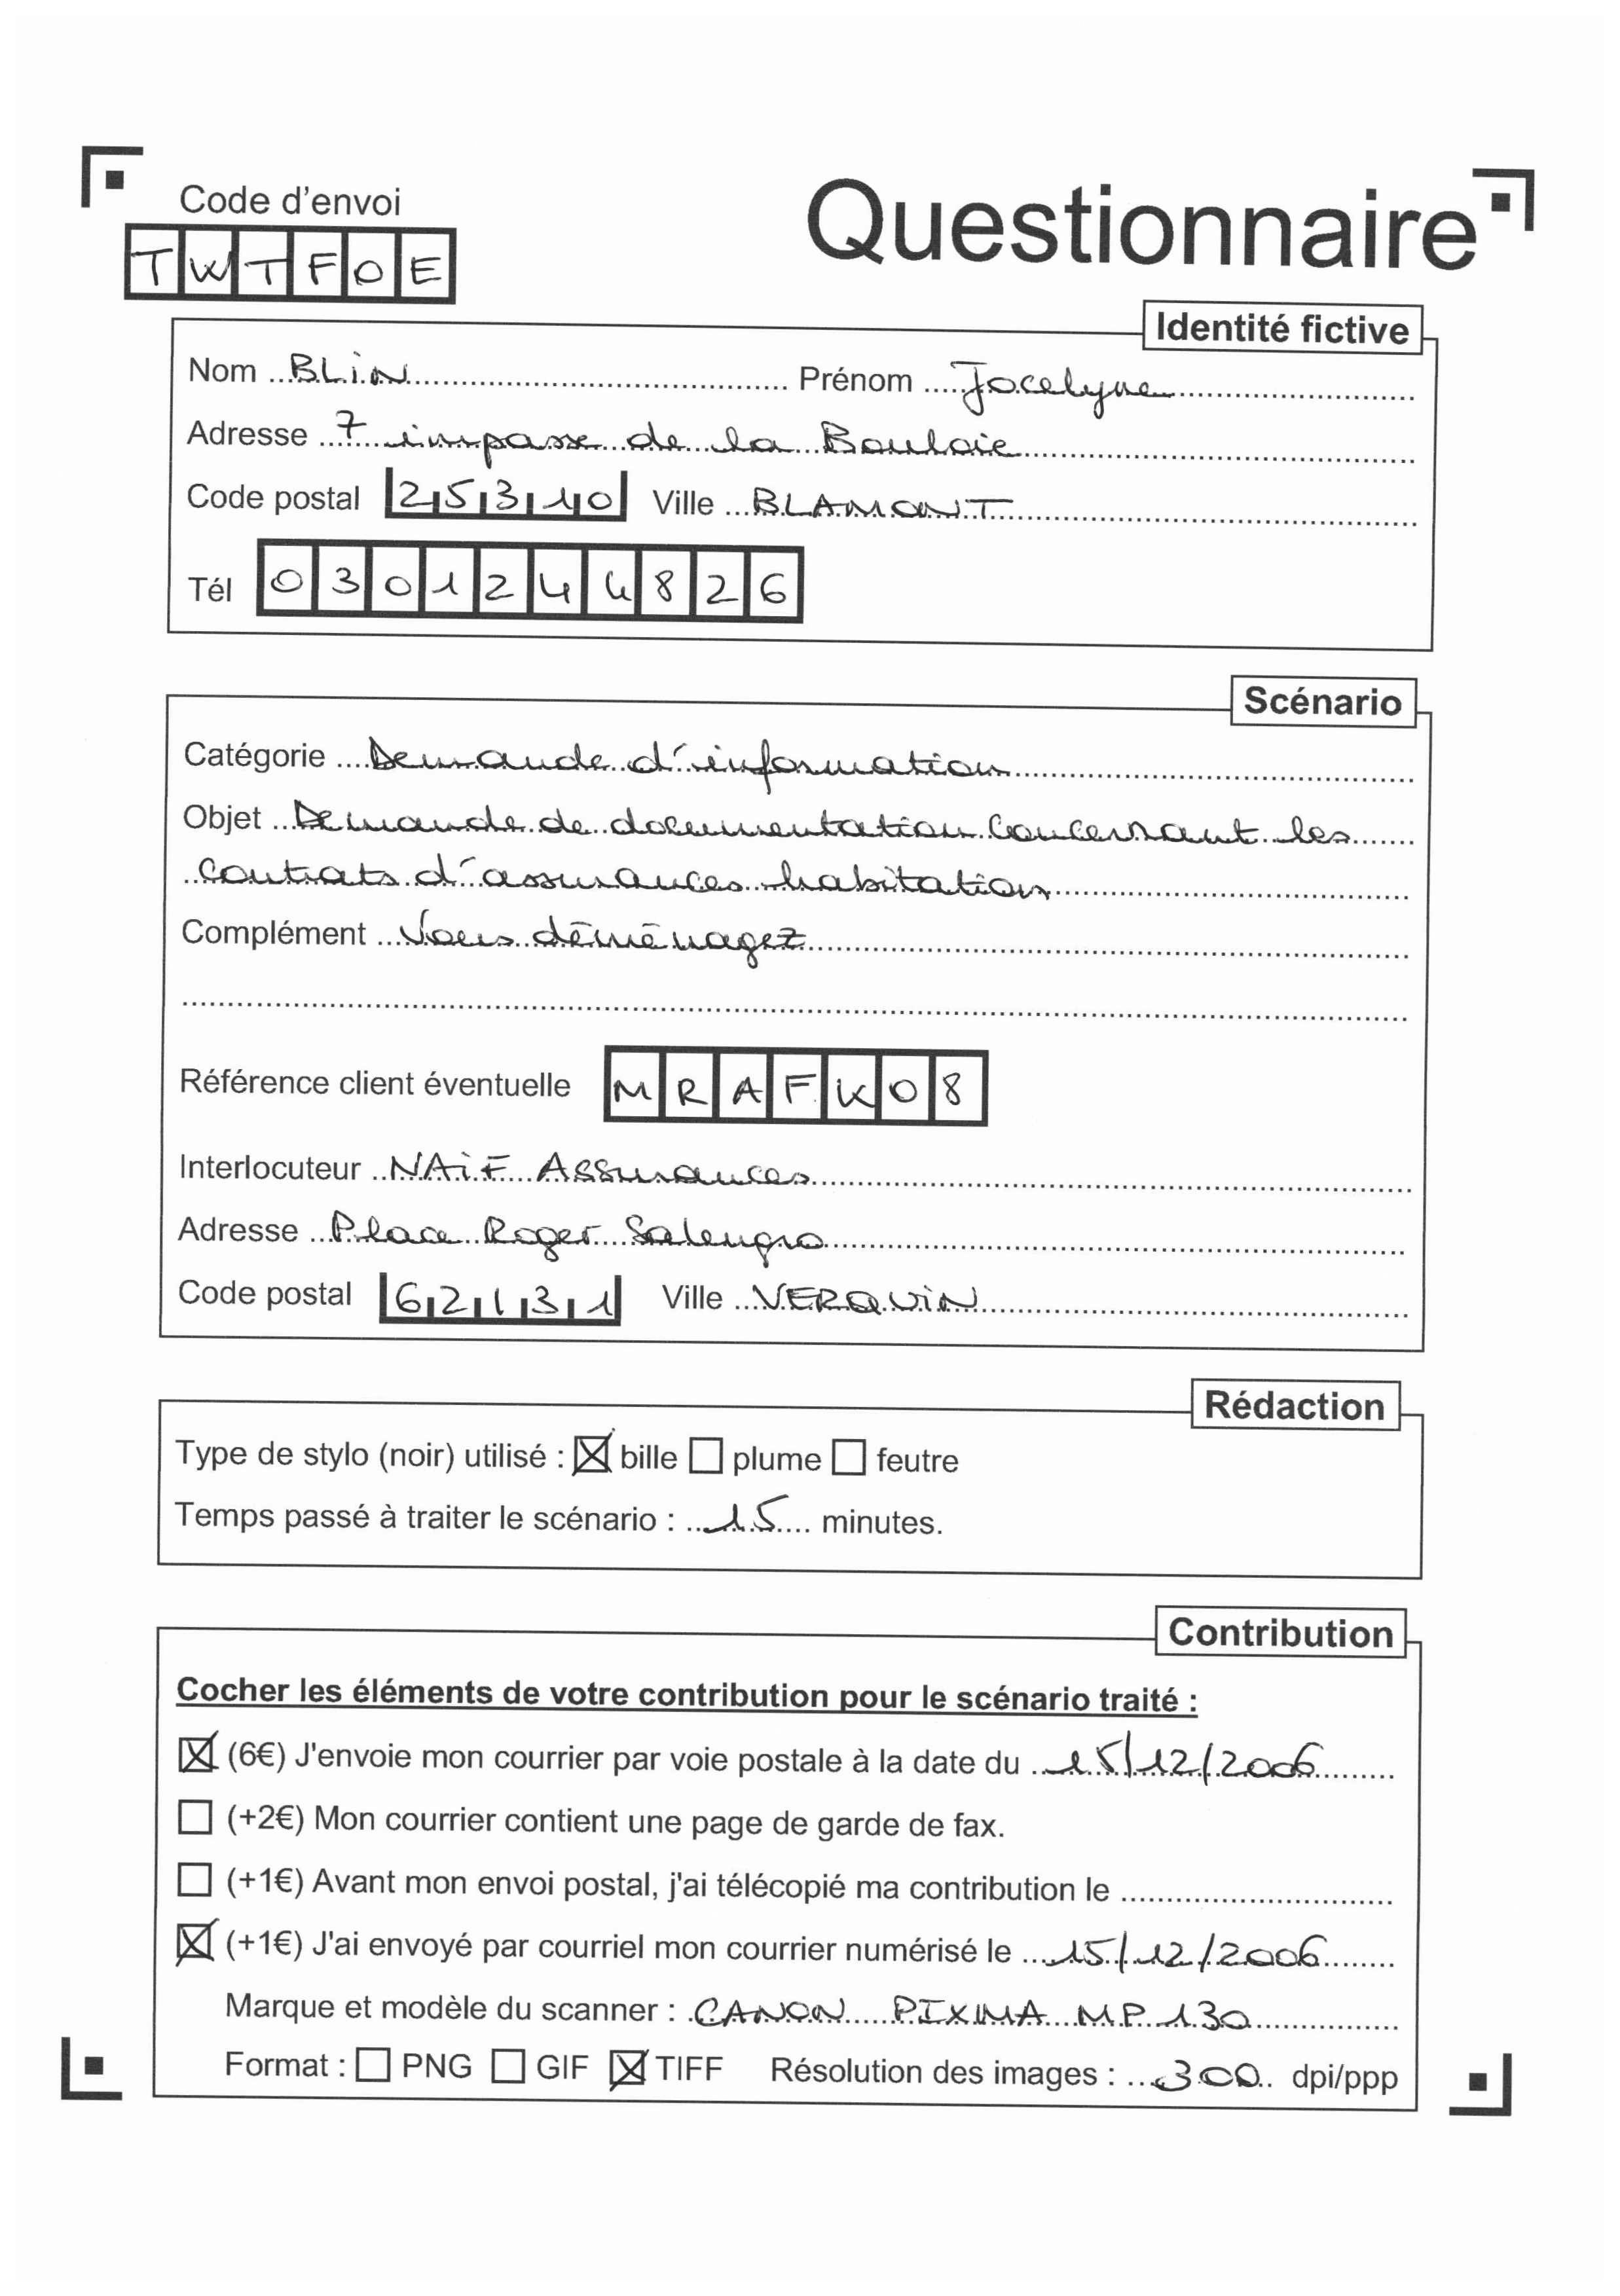 Code d'envoi
Questionnaire
TWTFOE
Identité fictive
Nom BLiN Prénom Jocelyne
Adresse 7 impasse de la Bouloie
Code postal 25310 Ville BLAMONT
Tél 0301244826
Scénario
Catégorie Demande d'information
Objet Demande de documentation concernant les
contrats d'assurances habitation
Complément Vous déménagez
Référence client éventuelle MRAFK08
Interlocuteur NAiF Assurances
Adresse Place Roger Salengro
Code postal 62131 Ville VERQUiN
Rédaction
Type de stylo (noir) utilisé : ☒ bille ☐ plume ☐ feutre
Temps passé à traiter le scénario : 15 minutes.
Contribution
Cocher les éléments de votre contribution pour le scénario traité :
☒ (6€) J'envoie mon courrier par voie postale à la date du 15/12/2006
☐ (+2€) Mon courrier contient une page de garde de fax.
☐ (+1€) Avant mon envoi postal, j'ai télécopié ma contribution le
☒ (+1€) J'ai envoyé par courriel mon courrier numérisé le 15/12/2006
Marque et modèle du scanner : CANON PIXMA MP 130
Format : ☐ PNG ☐ GIF ☒ TIFF Résolution des images : 300 dpi/ppp